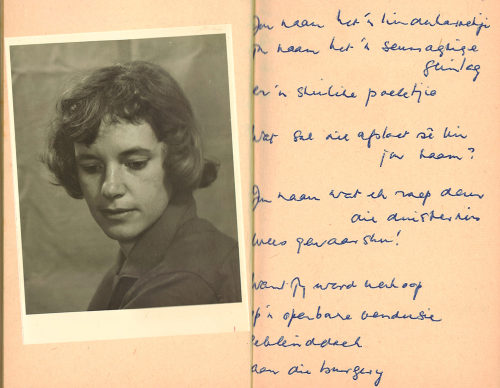 Jou naam het 'n kinderkarretjie
Jou naam het 'n seunsagtige
glimlag
en 'n
wat sal die afslaer sê
jou naam?
Jou naam wat ek roep deur
die duisternis
wees gewaarsku!
want jy word verkoop
op 'n openbare vendusie
geblinddoek
aan die burgery